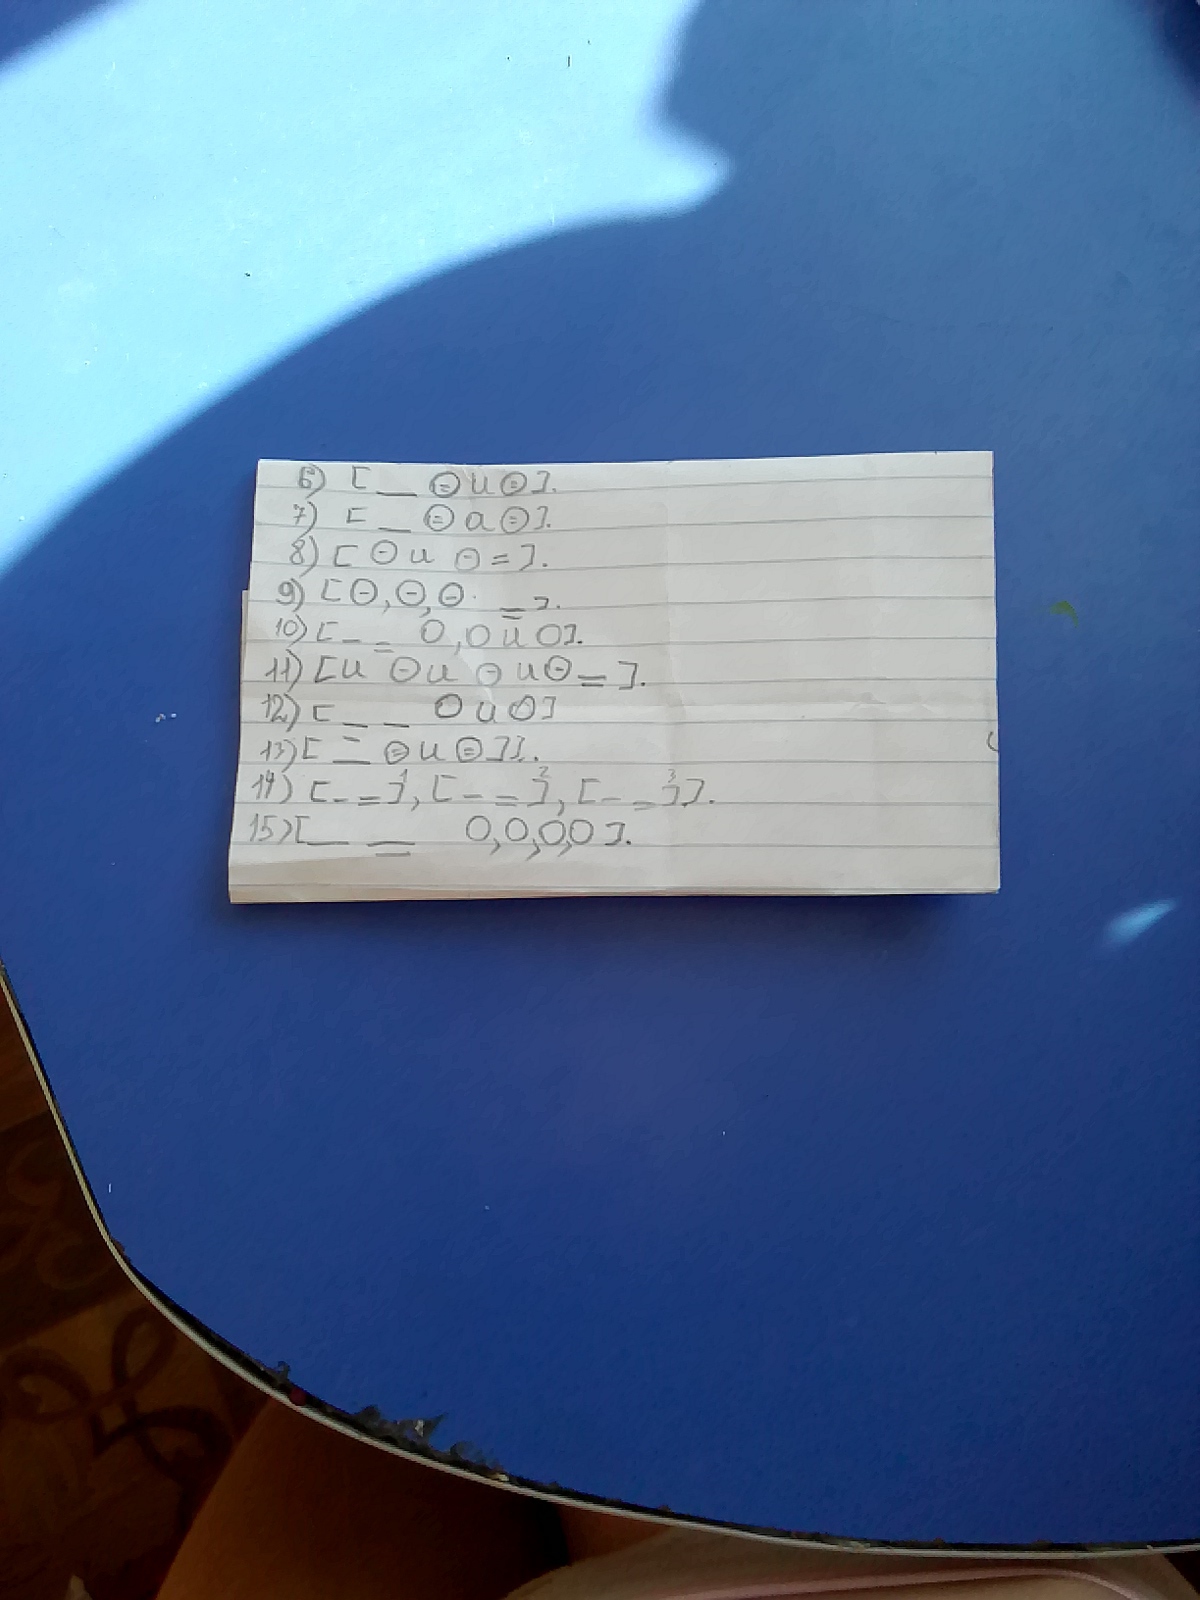 6) [ __ ⊜ и ⊜ ].
7) [ _ ⊜ а ⊖ ].
8) [ ⊖ и ⊖ = ].
9) [ ⊖, ⊖, ⊖. = ].
10) [ _ = О, О и О ].
11) [ и ⊖ и ⊖ и ⊖ = ].
12) [ _ _ О и О ]
13) [ = ⊜ и ⊜ ] ].
14) [ _ = ]¹, [ _ _ = ]², [ _ = ]³ ].
15) [ __ = О, О, О, О ].